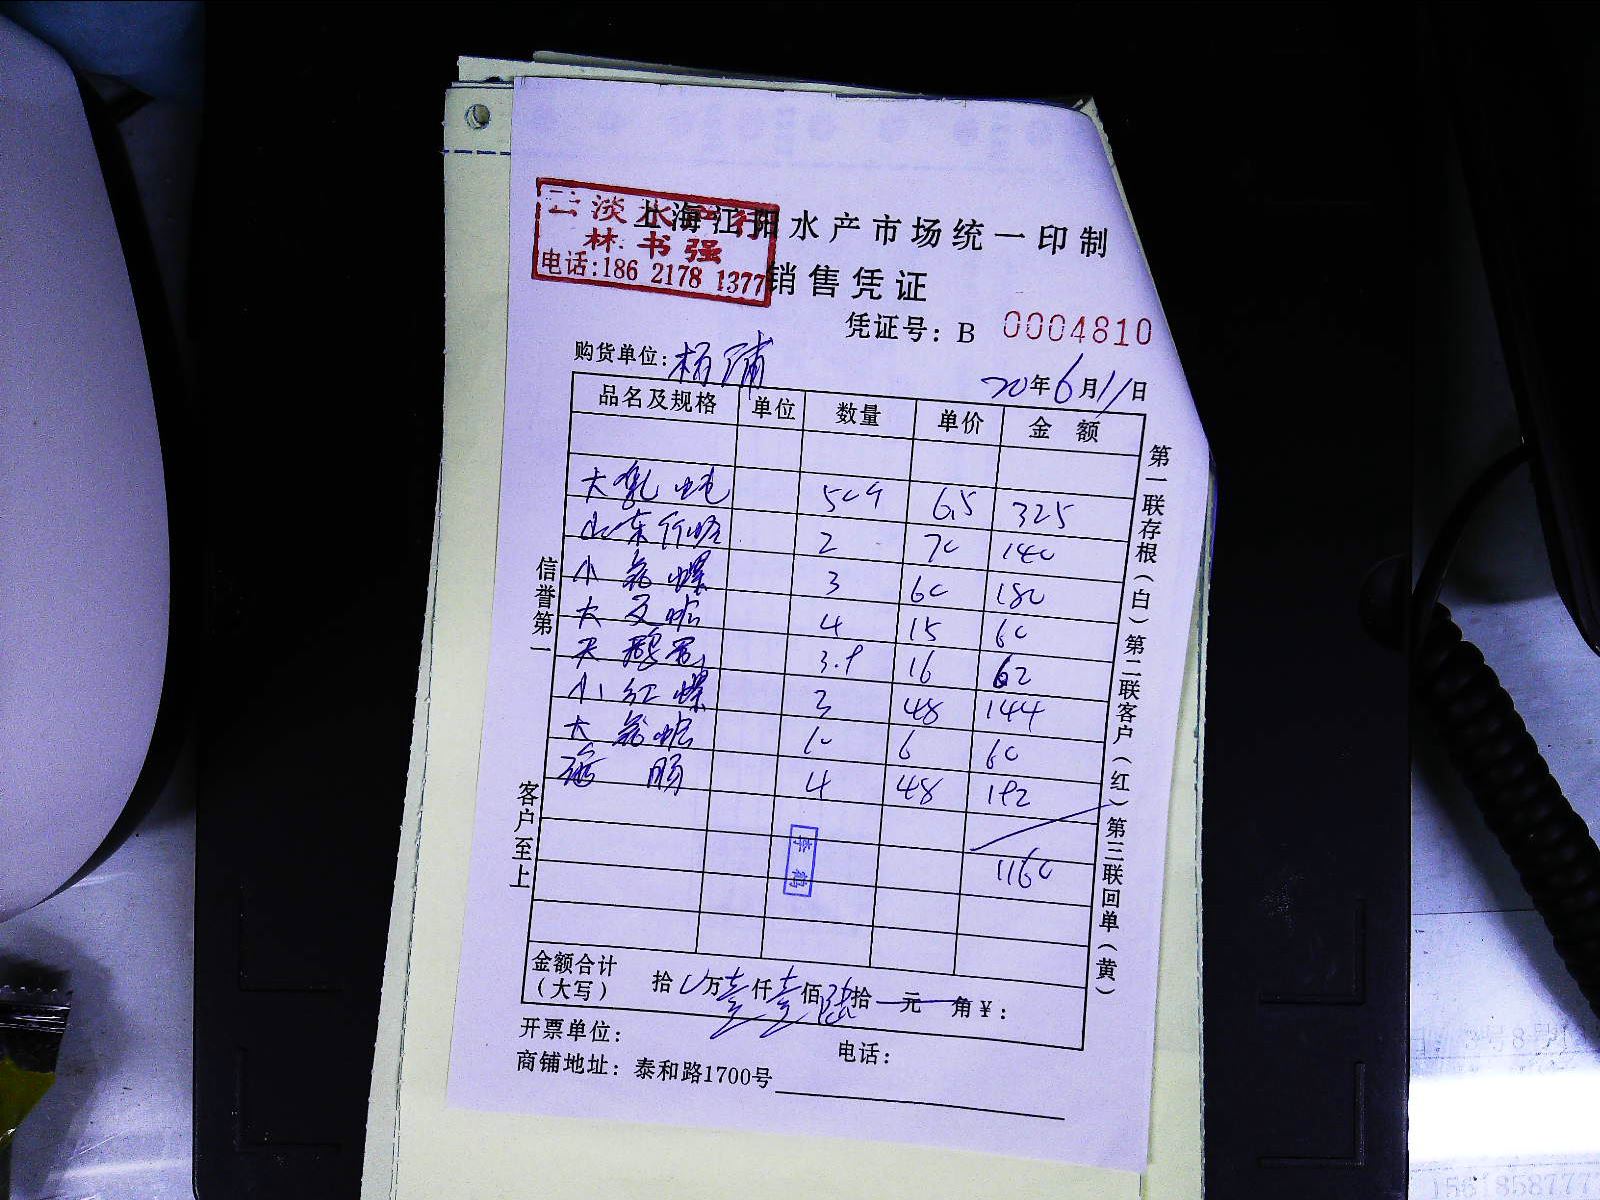 上海江阳水产市场统一印制
林书强
电话:186 2178 1377
销售凭证
凭证号: B 0004810
购货单位: 杨浦
20年6月11日
品名及规格 单位 数量 单价 金额
6.5 325
山东 2 70 140
小 螺 3 60 180
大 4 15 60
天鹅蛋 3.9 16 62
小红螺 3 48 144
大 10 6 60
海肠 4 48 192
1160
金额合计
(大写) 拾 万壹仟壹佰陆拾 元 角¥:
开票单位: 电话:
商铺地址: 泰和路1700号
信誉第一
客户至上
第一联存根(白)第二联客户(红)第三联回单(黄)